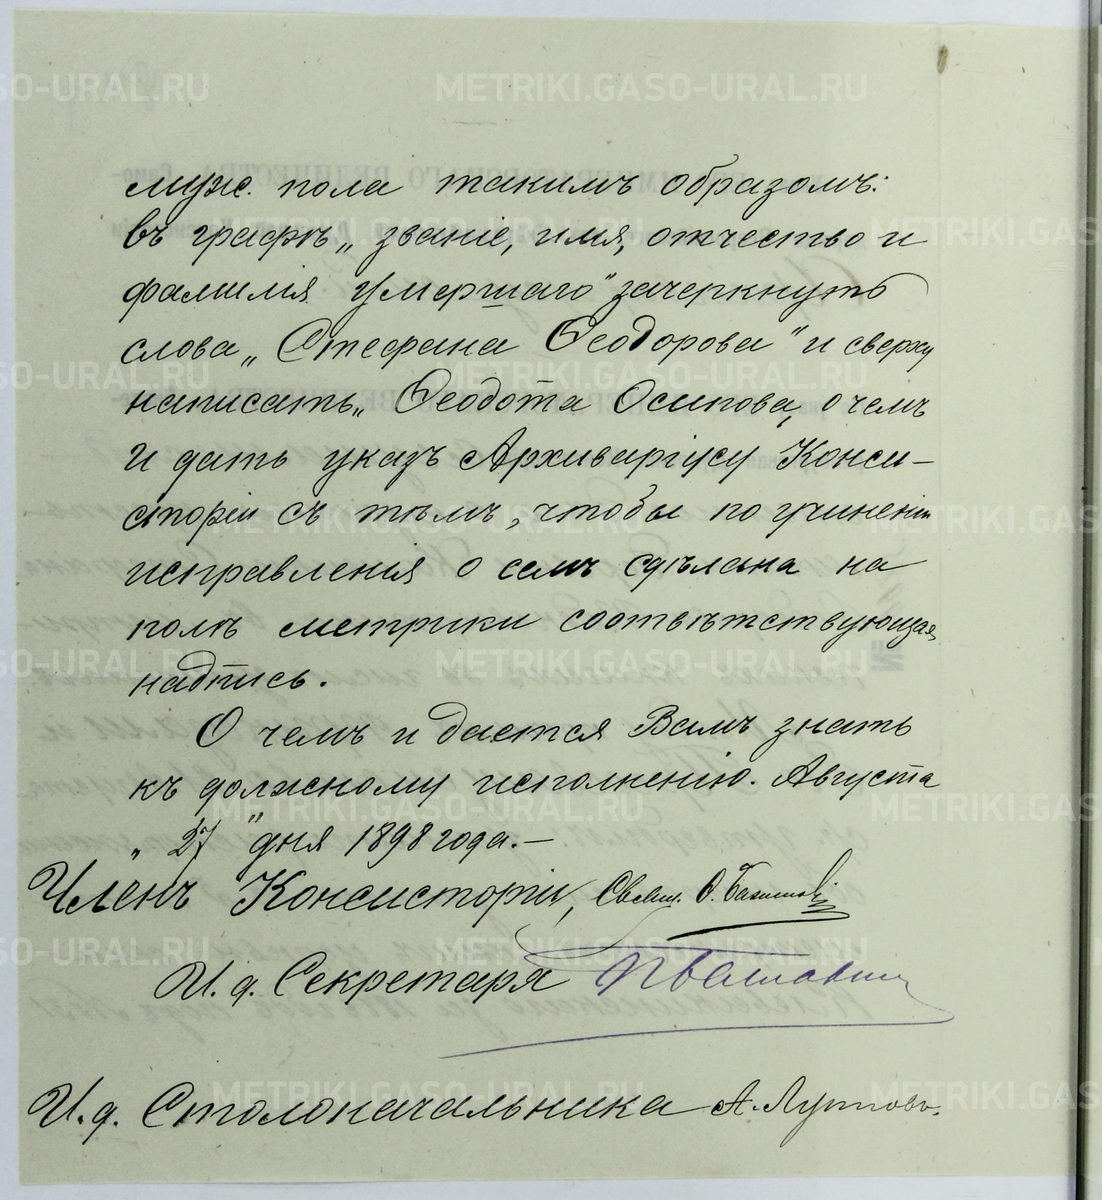 муж. пола такимъ образомъ:
въ графѣ „званіе, имя, отчество и
фамилія умершаго“ зачеркнуть
слова „Стефана Ѳеодорова“ и сверху
написать „Ѳеодота Осипова, о чемъ
и дать указъ Архиваріусу Конси-
сторіи съ тѣмъ, чтобы по учиненіи
исправленія о семъ сдѣлана на
полѣ метрики соотвѣтствующая
надпись.
О чемъ и дается Вамъ знать
къ должному исполненію. Августа
„27“ дня 1898 года.—
Членъ Консисторіи, Свящ.
И. д. Секретаря
И. д. Столоначальника А.
METRIKI.GASO-URAL.RU